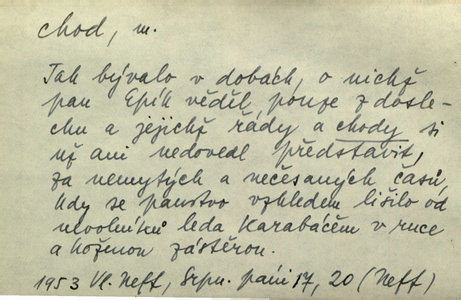 chod, m.
Tak bývalo v dobách, o nichž
pan Epík věděl pouze z dosle-
chu a jejichž řády a chody si
už ani nedovedl představit,
za nemytých a nečesaných časů,
kdy se panstvo vzhledem lišilo od
nevolníků leda karabáčem v ruce
a koženou zástěrou.
1953 Vl. Neff, Srpn. páni 17, 20 (Neff)